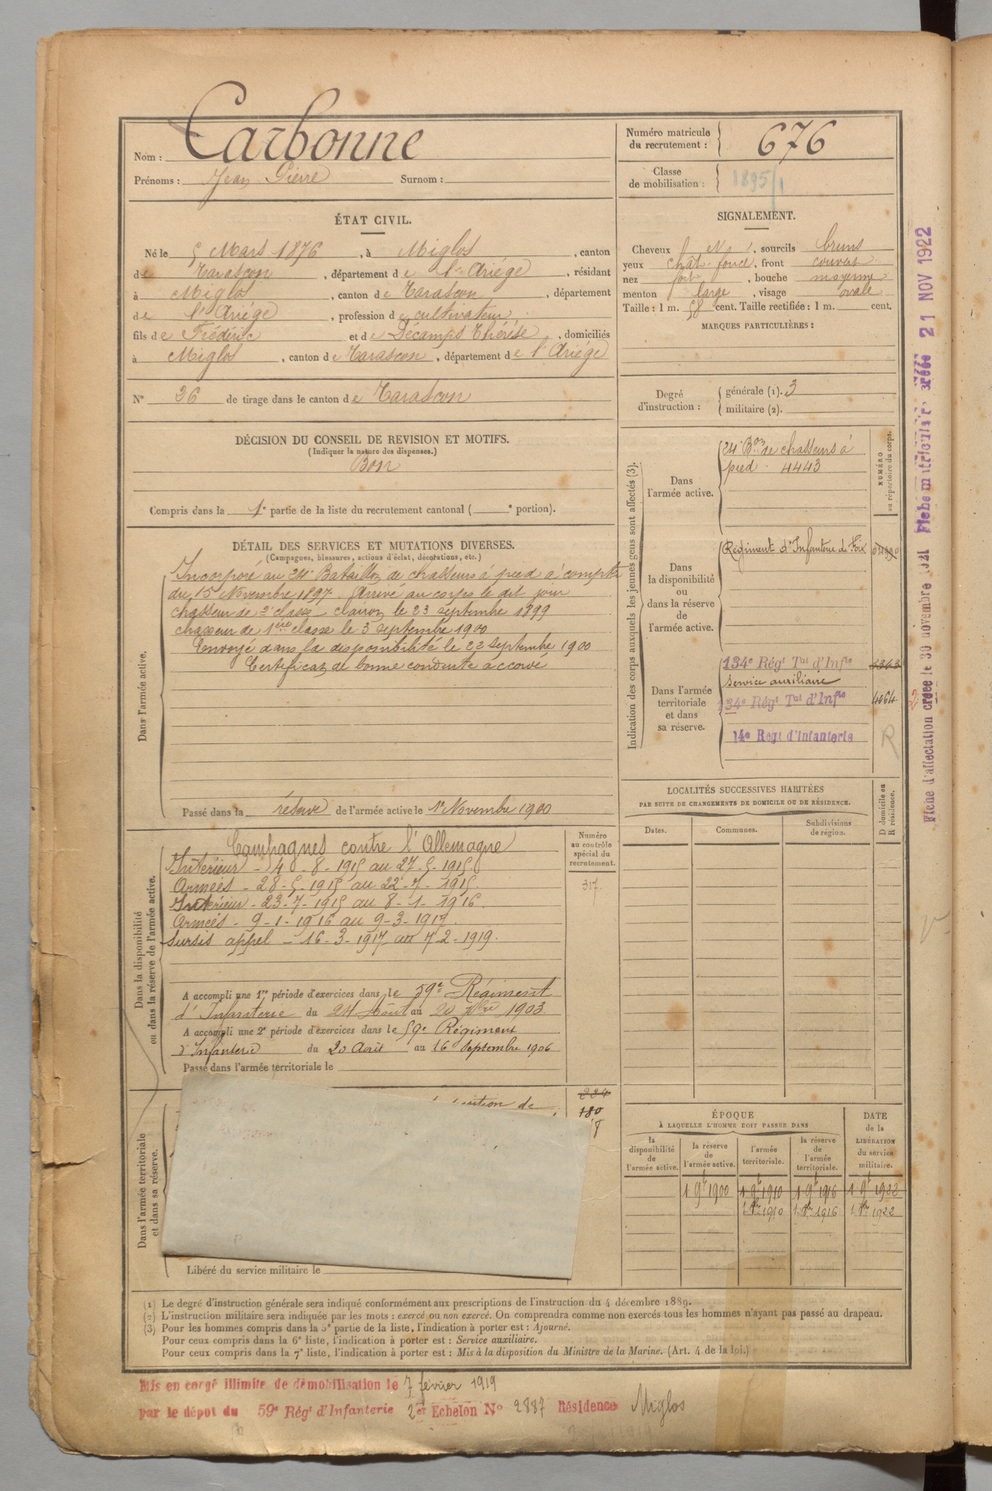 Nom : Carbonne
Prénoms : Jean Pierre Surnom :
Numéro matricule du recrutement : 676
Classe de mobilisation : 1895/1
ÉTAT CIVIL.
Né le 5 Mars 1876, à Miglos, canton
de Tarascon, département de l'Ariège, résidant
à Miglos, canton de Tarascon, département
de l'Ariège, profession de cultivateur
fils de Frédéric et de Décamps Thérèse, domiciliés
à Miglos, canton de Tarascon, département de l'Ariège
N° 36 de tirage dans le canton de Tarascon
SIGNALEMENT.
Cheveux sourcils bruns
yeux chât. foncé, front couvert
nez fort, bouche moyenne
menton large, visage ovale
Taille : 1 m. 58 cent. Taille rectifiée : 1 m. cent.
MARQUES PARTICULIÈRES :
Degré d'instruction :
générale (1). 3
militaire (2).
DÉCISION DU CONSEIL DE REVISION ET MOTIFS.
(Indiquer la nature des dispenses.)
Bon
Compris dans la 1e partie de la liste du recrutement cantonal ( e portion).
DÉTAIL DES SERVICES ET MUTATIONS DIVERSES.
(Campagnes, blessures, actions d'éclat, décorations, etc.)
Dans l'armée active.
Incorporé au 24e Bataillon de chasseurs à pied à compter
du 15 Novembre 1897. Arrivé au corps le dit jour
chasseur de 2e classe clairon le 23 septembre 1899
chasseur de 1ère classe le 3 septembre 1900
Envoyé dans la disponibilité le 22 septembre 1900
Certificat de bonne conduite accordé
Passé dans la réserve de l'armée active le 1er Novembre 1900
Indication des corps auxquels les jeunes gens sont affectés (3).
NUMÉRO au répertoire du corps.
Dans l'armée active.
24e Bon de chasseurs à
pied - 4443
Dans la disponibilité ou dans la réserve de l'armée active.
Régiment d'Infanterie de Foix
Dans l'armée territoriale et dans sa réserve.
134e Régt Tal d'Infie
service auxiliaire
134e Régt Tal d'Infie 4064
14e Régt d'Infanterie R
LOCALITÉS SUCCESSIVES HABITÉES
PAR SUITE DE CHANGEMENTS DE DOMICILE OU DE RÉSIDENCE.
Dates. Communes. Subdivisions de région. D domicile ou R résidence.
Dans la disponibilité ou dans la réserve de l'armée active.
Numéro au contrôle spécial du recrutement.
317.
Campagnes contre l'Allemagne
Intérieur - 4-8-1915 au 27-5-1915
Armées - 28-5-1915 au 22-7-1915.
Intérieur - 23-7-1915 au 8-1-1916.
Armées - 9-1-1916 au 9-3-1917
Sursis appel - 16-3-1917 au 7-2-1919.
A accompli une 1re période d'exercices dans le 59e Régiment
d'Infanterie du 24 Août au 20 7bre 1903
A accompli une 2e période d'exercices dans le 59e Régiment
d'Infanterie du 20 Août au 16 Septembre 1906
Passé dans l'armée territoriale le
Dans l'armée territoriale et dans sa réserve.
180
Libéré du service militaire le
ÉPOQUE
À LAQUELLE L'HOMME DOIT PASSER DANS
la disponibilité de l'armée active.
la réserve de l'armée active.
l'armée territoriale.
la réserve de l'armée territoriale.
DATE de la LIBÉRATION du service militaire.
1 9e 1900 1 9e 1910 1 9e 1916 1 9e 1922
1 9e 1910 1 9e 1916 1 9e 1922
(1) Le degré d'instruction générale sera indiqué conformément aux prescriptions de l'instruction du 4 décembre 1889.
(2) L'instruction militaire sera indiquée par les mots : exercé ou non exercé. On comprendra comme non exercés tous les hommes n'ayant pas passé au drapeau.
(3) Pour les hommes compris dans la 5e partie de la liste, l'indication à porter est : Ajourné.
Pour ceux compris dans la 6e liste, l'indication à porter est : Service auxiliaire.
Pour ceux compris dans la 7e liste, l'indication à porter est : Mis à la disposition du Ministre de la Marine. (Art. 4 de la loi.)
Mis en congé illimité de démobilisation le 7 février 1919
par le dépôt du 59e Régt d'Infanterie 2er Echelon No 2887 Résidence Miglos
Fiche d'affectation créée le 30 novembre 1921 Fiche matriculaire créée 21 NOV 1922